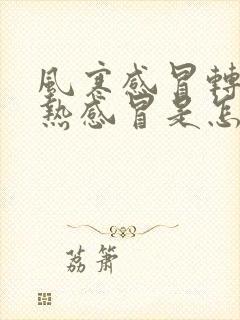 風寒感冒轉
熱感冒是怎
荔簫